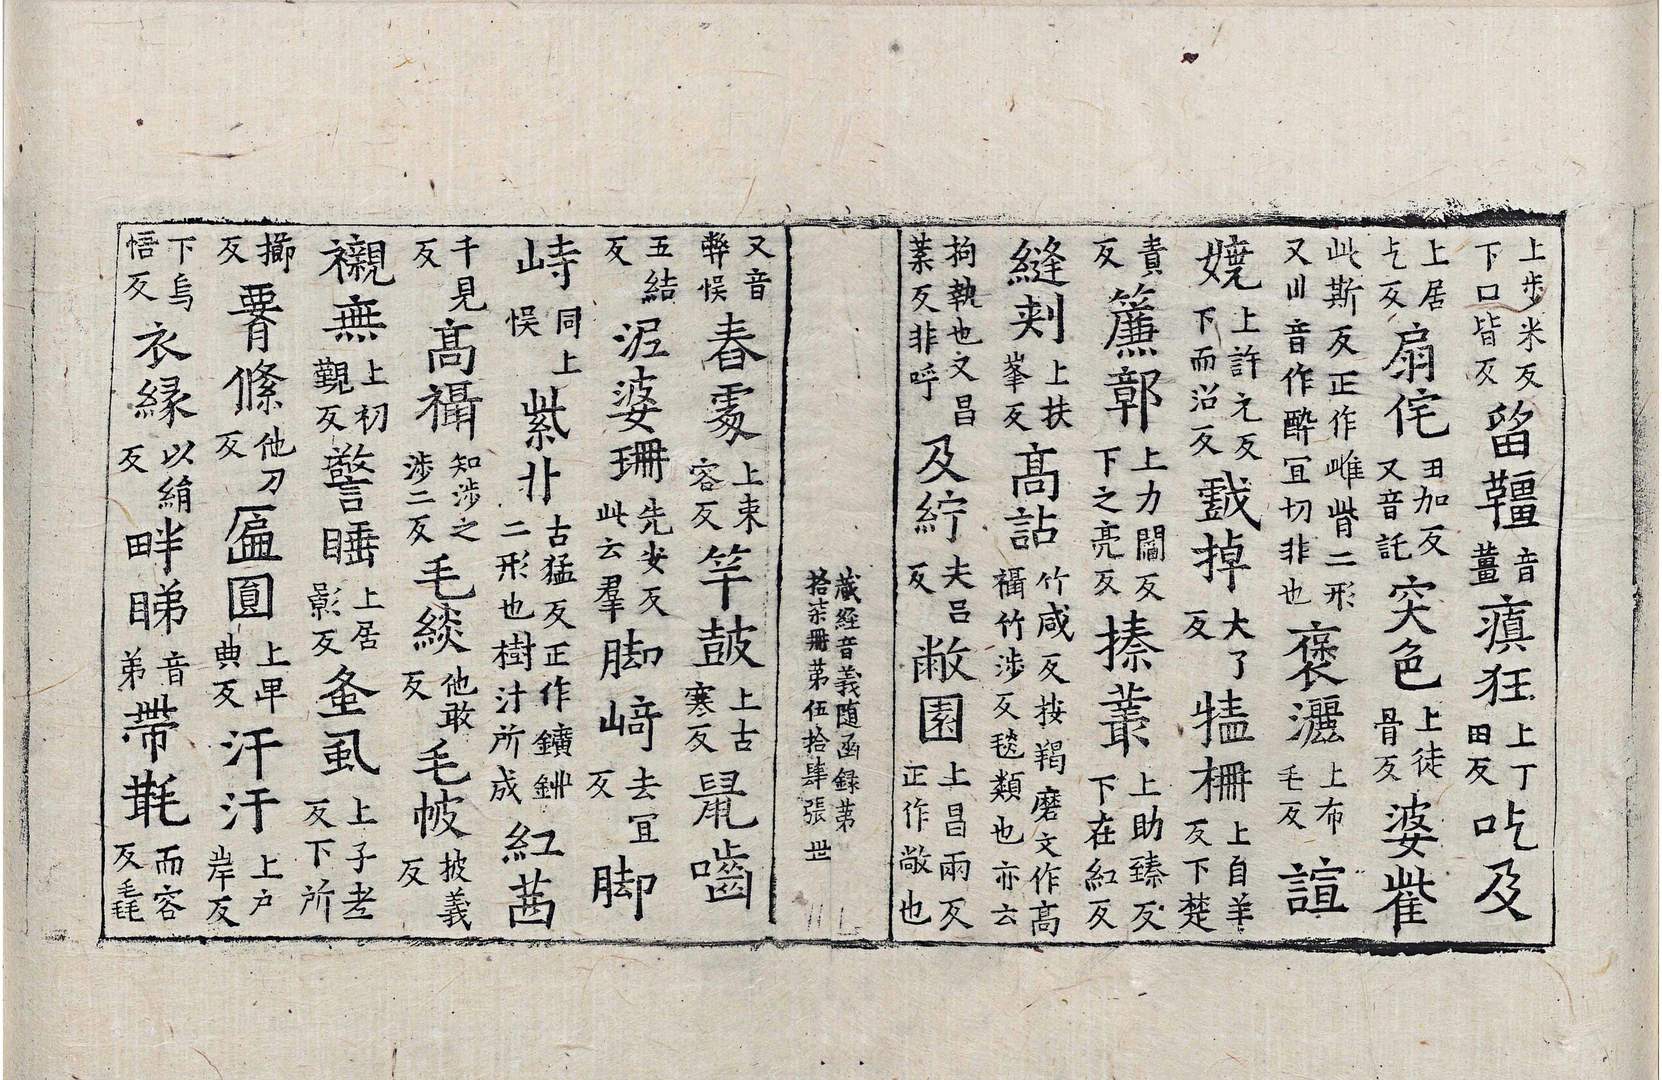 上步米反下口皆反留韁音薑瘨狂上丁田反吃及
上居乞反扇侘丑加反又音託突色上徒骨反婆㠿
此斯反正作雌觜二形又川音作醉冝切非也褒灑上布毛反諠
嬈上許元反下而沼反戱掉大了反㹍柵上自羊反下楚
責反簾鄣上力閻反下之亮反搸叢上助臻反下在紅反
縫刾上扶峯反髙詀竹咸反按羯磨文作高襵竹涉反毯類也亦云
拘執也文昌葉反非呼及紵夫吕反敝園上昌兩反正作敞也
藏經音義随函録第拾柒冊第伍拾肆張 世
又音弊悮舂䨥上束容反竿鼓上古寒反鼠嚙
五結反泥婆珊先安反此云羣脚﨑去冝反脚
峙同上悮紫丱古猛反正作鑛鉚二形也樹汁所成紅茜
千見反髙襵知涉之涉二反毛緂他敢反毛帔披義反
襯無上初覲反警睡上居影反蚤虱上子老反下所
擳反䏿絛他刀反匾圓上甲典反汗汗上户岸反
下烏悟反衣縁以絹反畔睇音弟帶㲨而容反毛毳